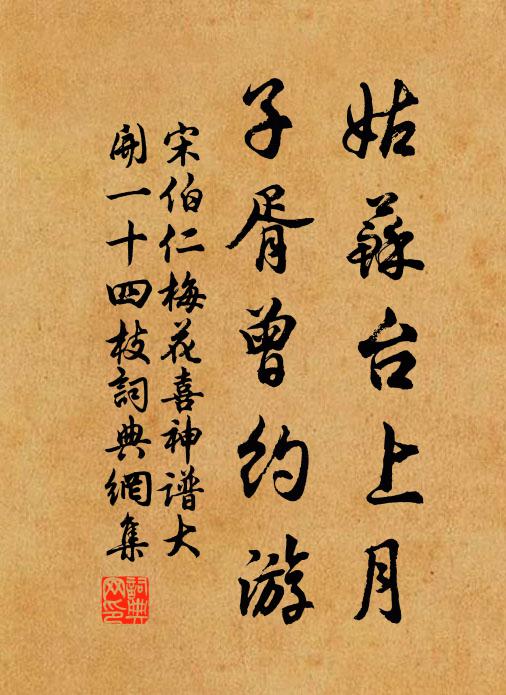 姑蘇台上月
子胥曾約游
宋伯仁梅花喜神譜大
開一十四枝詞典網集
詞典
网印